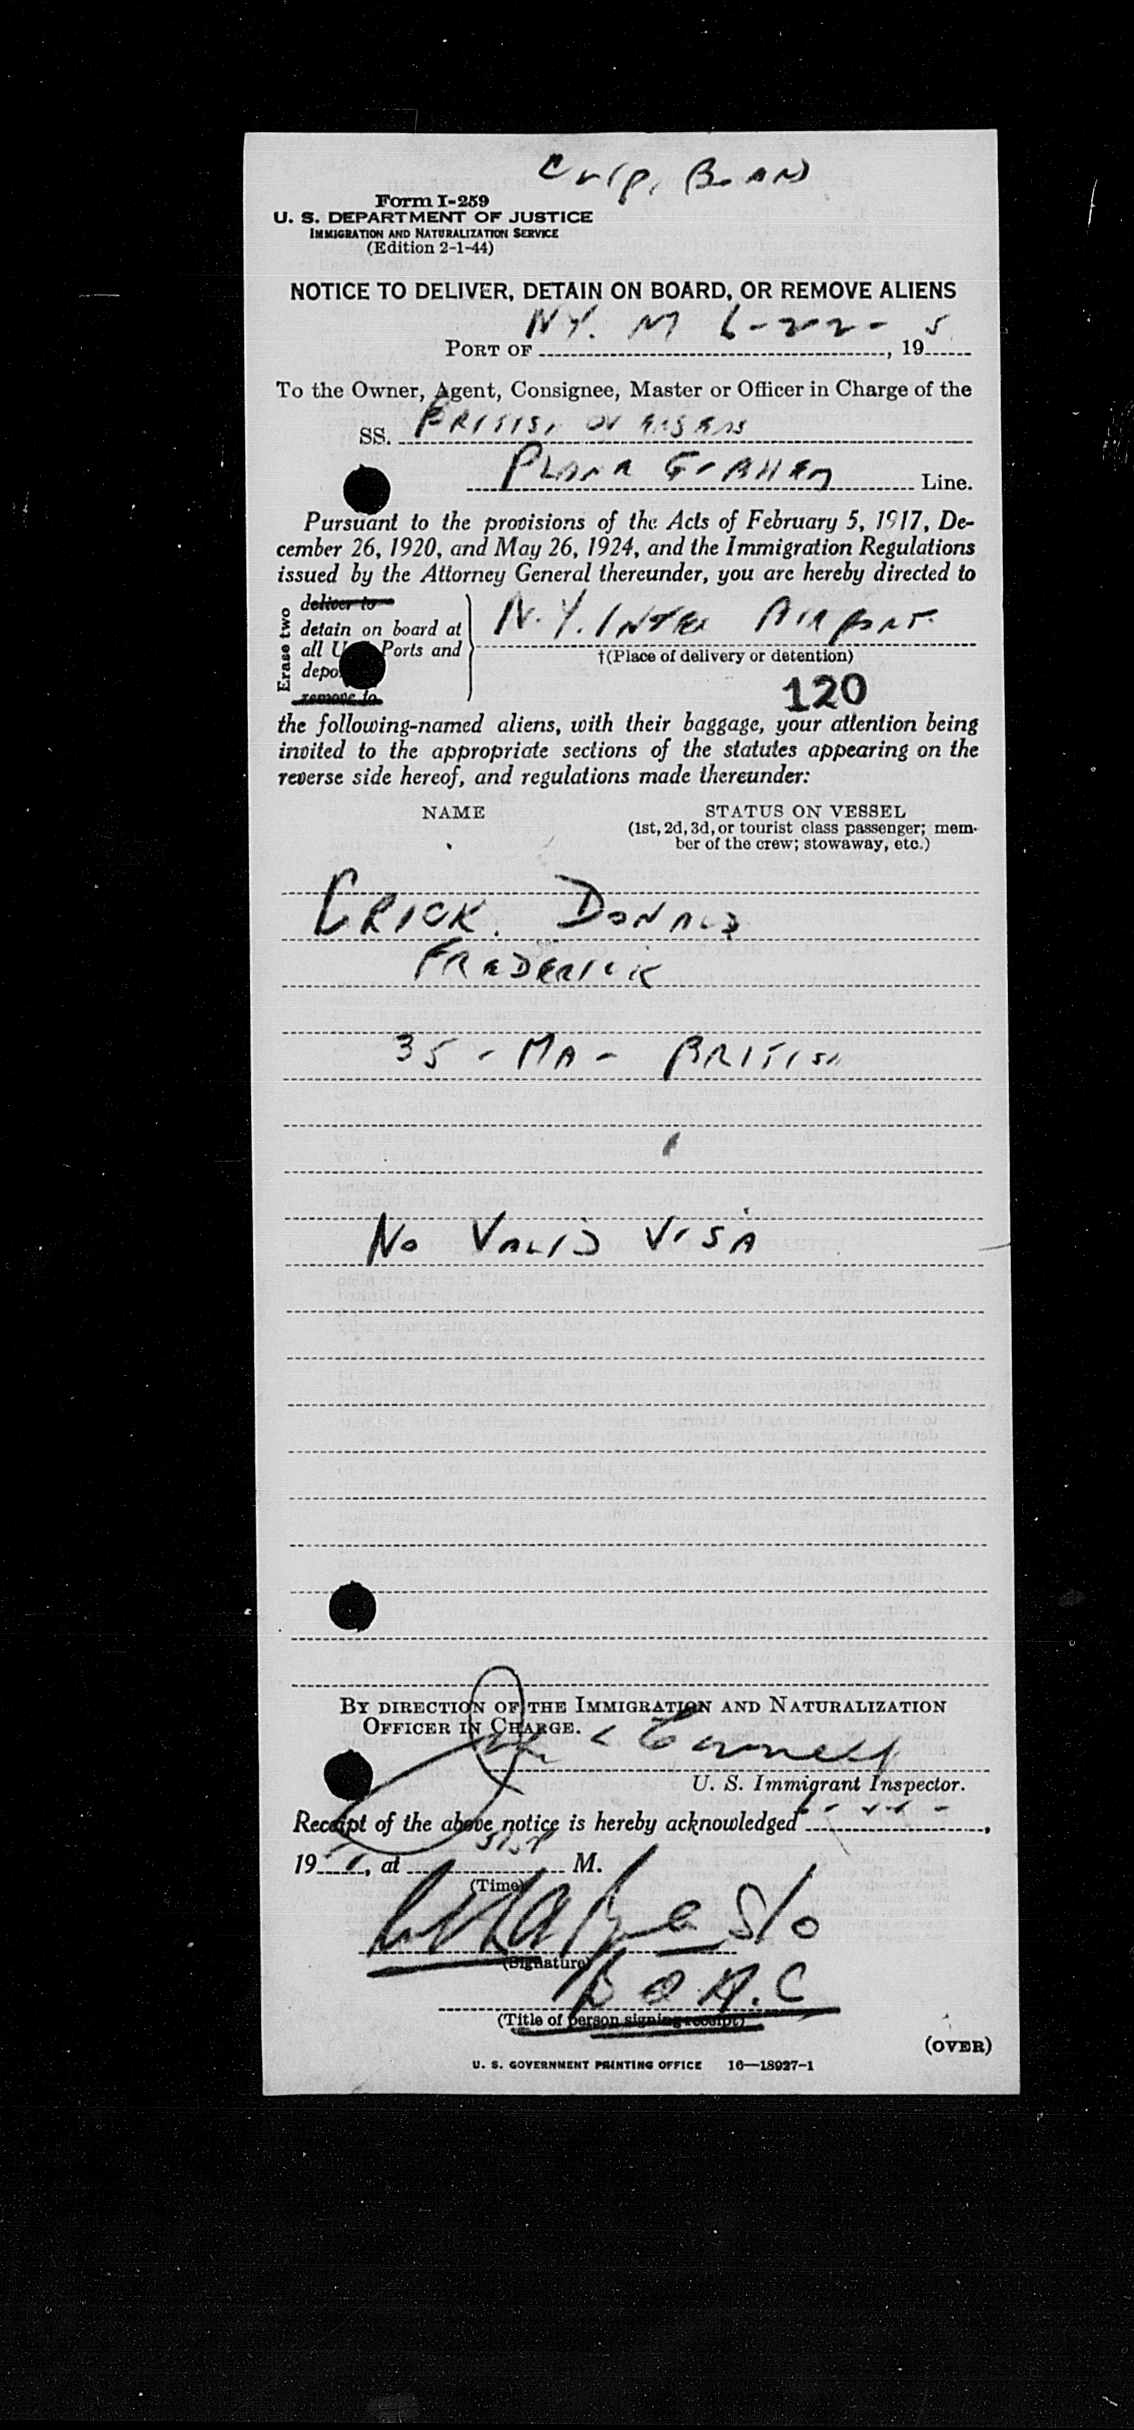 Form I-259
U. S. DEPARTMENT OF JUSTICE
IMMIGRATION AND NATURALIZATION SERVICE
(Edition 2-1-44)
NOTICE TO DELIVER, DETAIN ON BOARD, OR REMOVE ALIENS
NY. 6-22- 5
PORT OF , 19
To the Owner, Agent, Consignee, Master or Officer in Charge of the
SS. BRITISH
PLANE Line.
Pursuant to the provisions of the Acts of February 5, 1917, De-
cember 26, 1920, and May 26, 1924, and the Immigration Regulations
issued by the Attorney General thereunder, you are hereby directed to
Erase two
deliver to
detain on board at
all U. Ports and
depo
remove to
N.Y. INTER AIRPORT
†(Place of delivery or detention)
120
the following-named aliens, with their baggage, your attention being
invited to the appropriate sections of the statutes appearing on the
reverse side hereof, and regulations made thereunder:
NAME STATUS ON VESSEL
(1st, 2d, 3d, or tourist class passenger; mem-
ber of the crew; stowaway, etc.)
CRICK. DONALD
FREDERICK
35 - MA - BRITISH
NO VALID VISA
BY DIRECTION OF THE IMMIGRATION AND NATURALIZATION
OFFICER IN CHARGE.
U. S. Immigrant Inspector.
Receipt of the above notice is hereby acknowledged ,
19 , at M.
(Time)
(Signature)
B O A.C
(Title of person signing receipt)
(OVER)
U. S. GOVERNMENT PRINTING OFFICE 16—18927-1